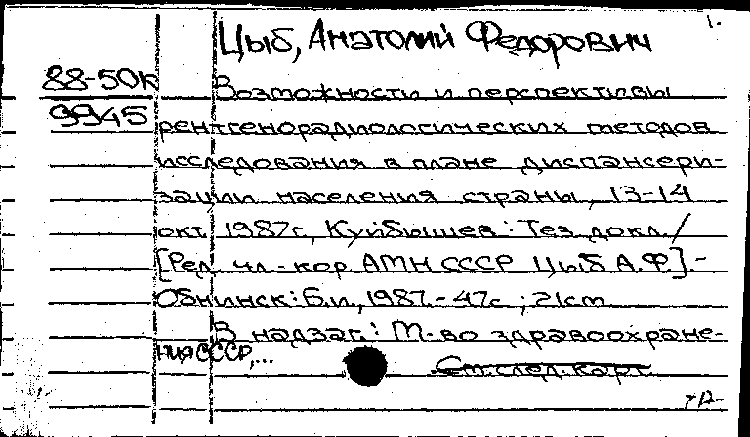 1.
Цыб, Анатолий Федорович
88-50К
9945
Возможности и перспективы
рентгенорадиологических методов
исследования в плане диспансери-
зации населения страны, 13-14
окт. 1987г., Куйбышев: Тез. докл. /
[Ред. чл.-кор. АМН СССР Цыб А.Ф.].-
Обнинск: Б.и., 1987.- 47с ; 21см
В надзаг.: М-во здравоохране-
ния СССР,...
См. след. карт.